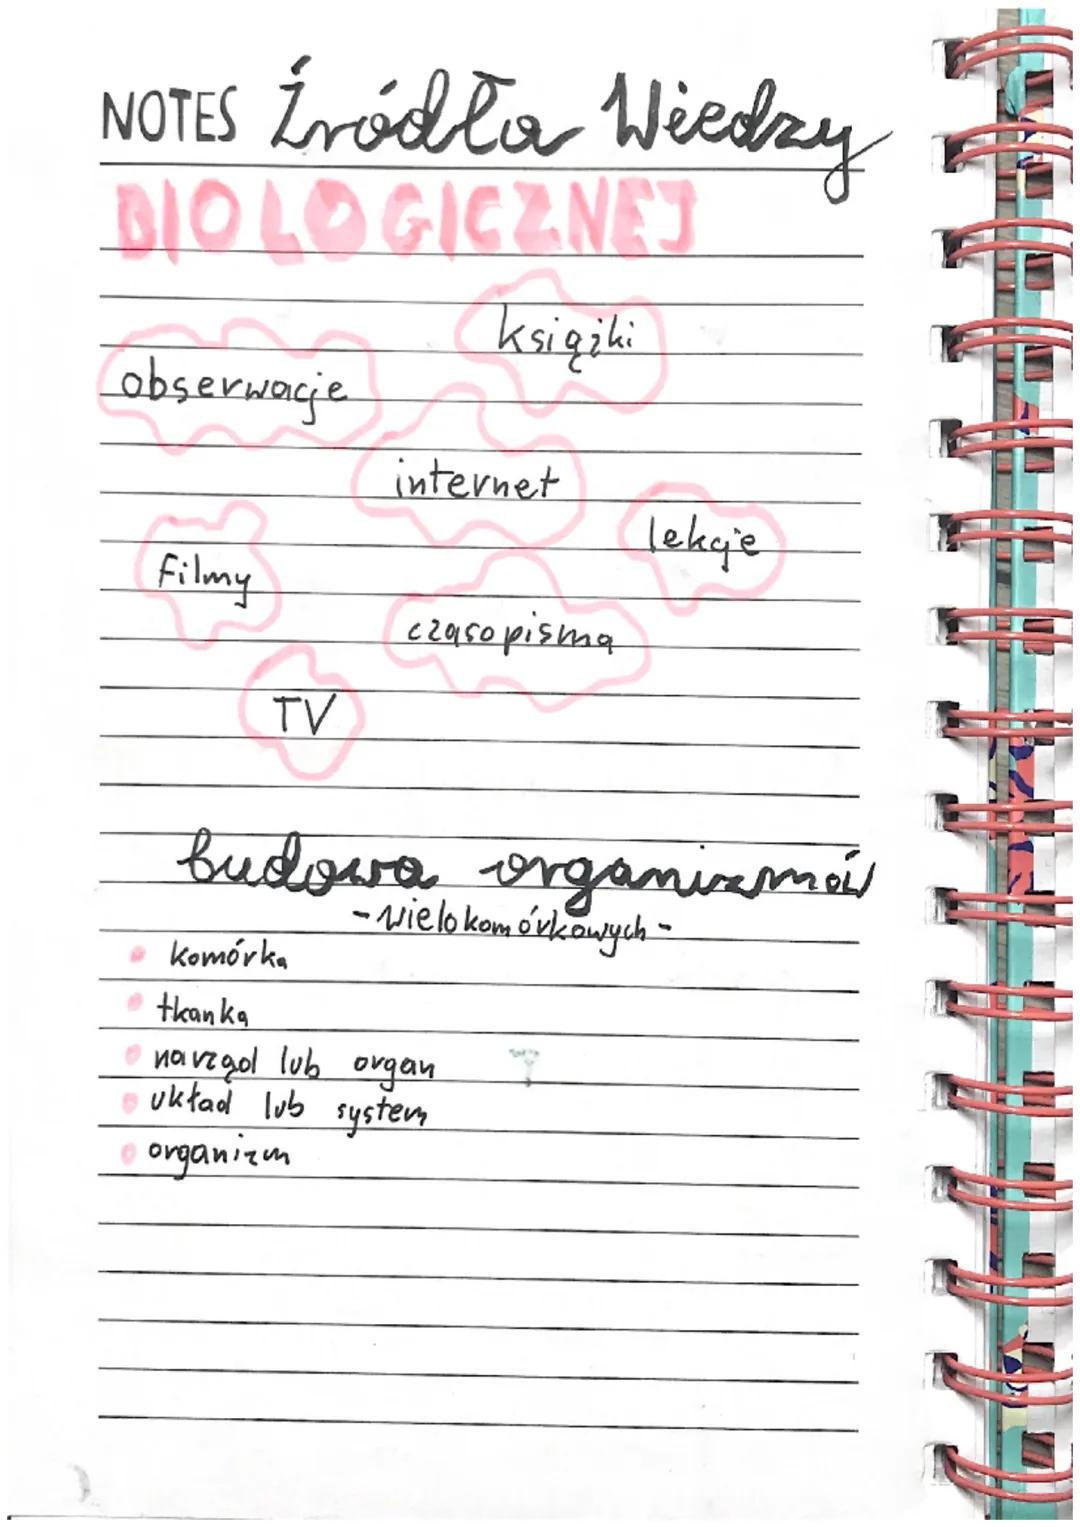 NOTES Źródła Wiedzy
BIOLOGICZNEJ
książki
obserwacje
internet
lekcje
filmy
czasopisma
TV
budowa organizmów
-wielokomórkowych-
• komórka
• tkanka
• narząd lub organ
• układ lub system
• organizm